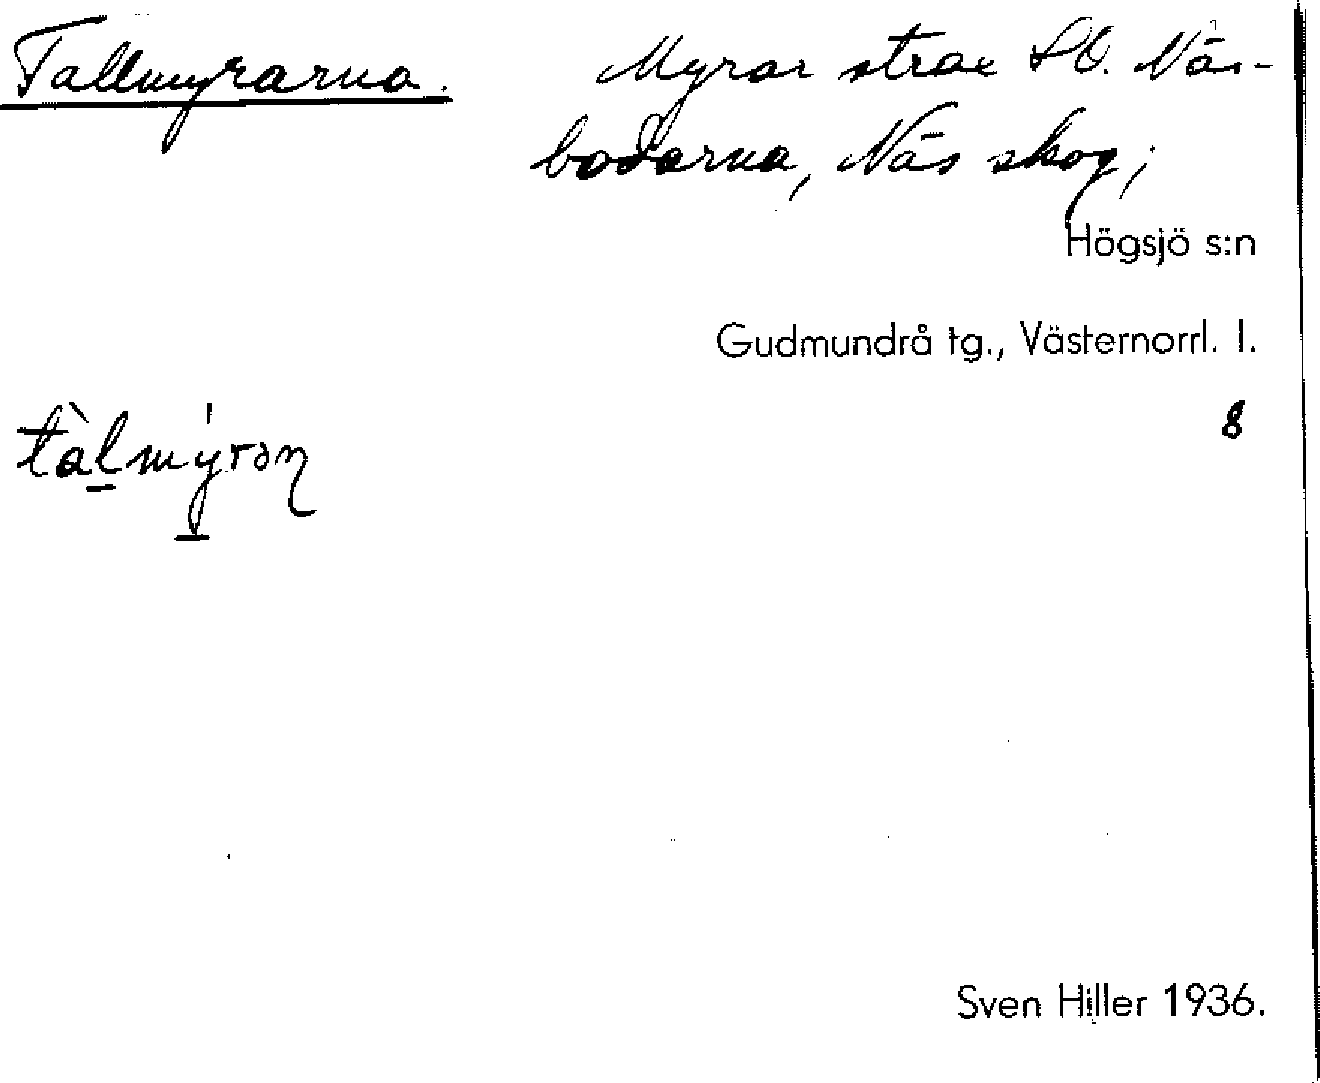 Tallmyrarna. Myrar strax SO. Näs-
bodarna, Näs skog;
Högsjö s:n
Gudmundrå tg., Västernorrl. l.
8
tàlmýrəṇ
Sven Hiller 1936.